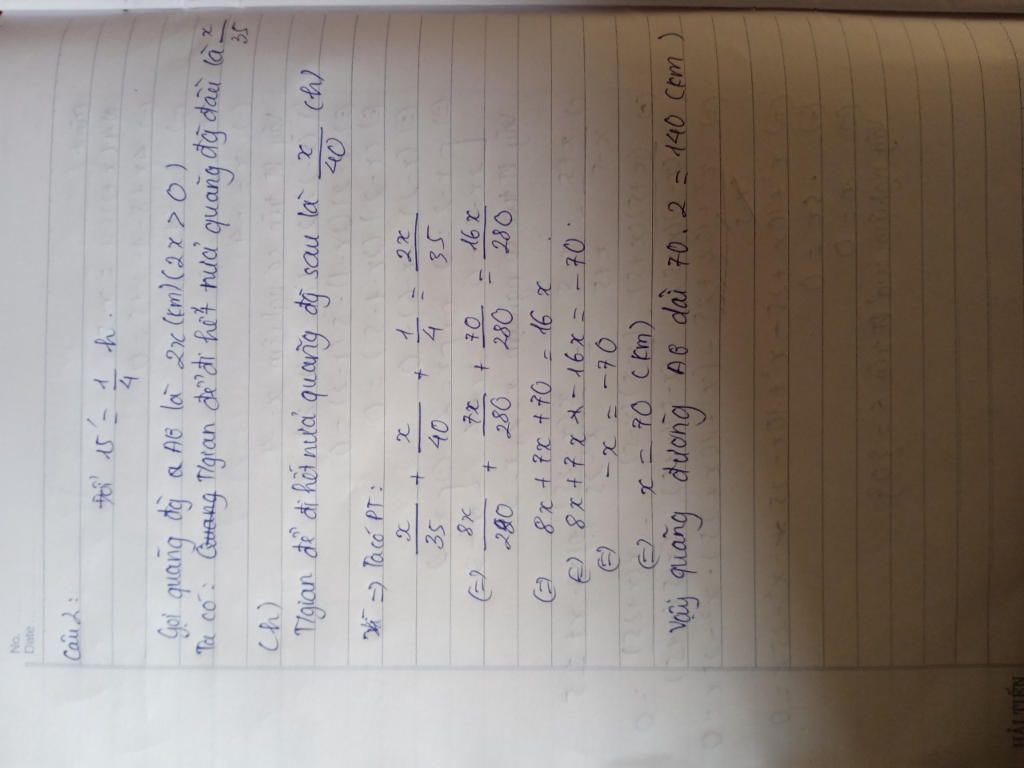 No.
Date
Câu 2:
Đổi 15' = 1/4 h.
Gọi quãng đg AB là 2x (km) (2x > 0)
Ta có: Tgian để đi hết nửa quãng đg đầu là x/35
(h)
Tgian để đi hết nửa quãng đg sau là x/40 (h)
=> Ta có PT:
x/35 + x/40 + 1/4 = 2x/35
(=) 8x/280 + 7x/280 + 70/280 = 16x/280
(=) 8x + 7x + 70 = 16x
(=) 8x + 7x - 16x = -70.
(=) -x = -70
(=) x = 70 (km)
Vậy quãng đường AB dài 70.2 = 140 (km)
HẢI TIẾN